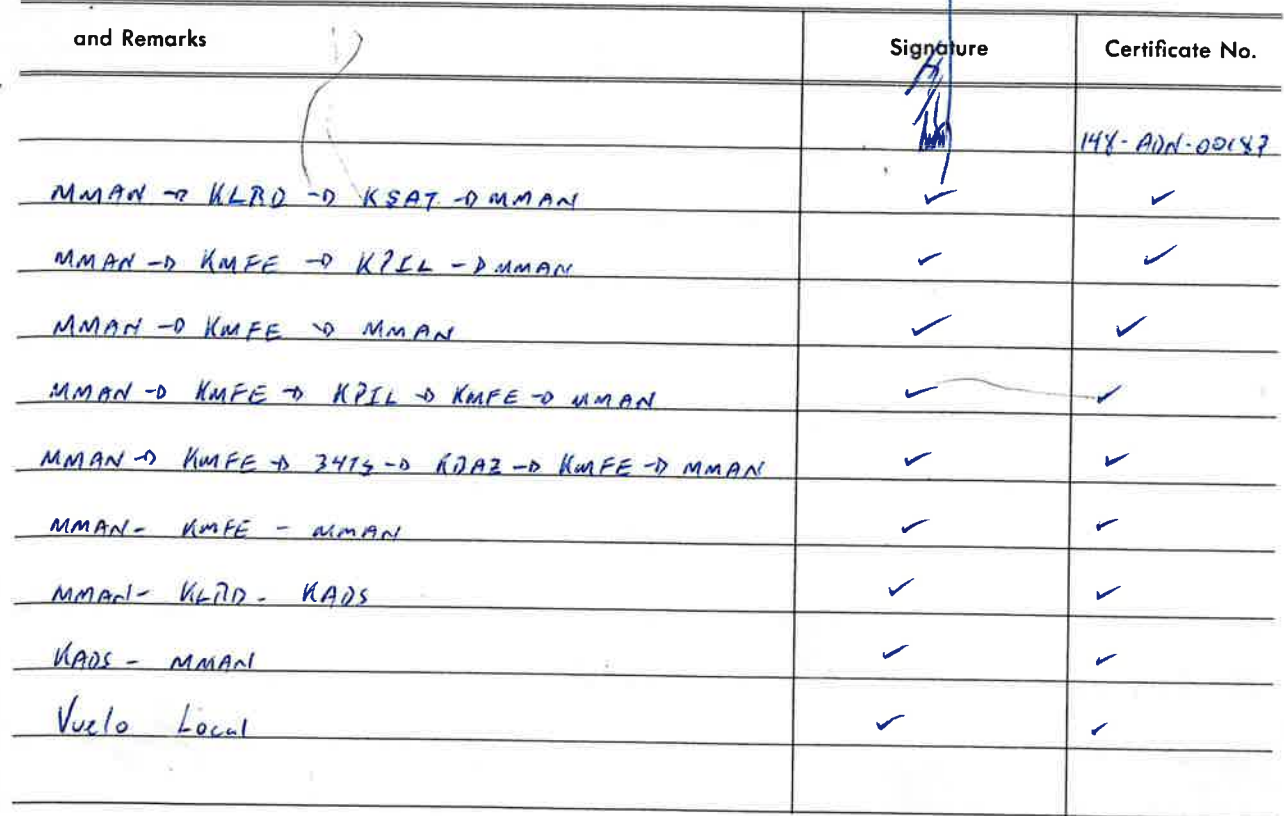 and Remarks Signature Certificate No.
148-ADN-00187
MMAN → KLRD → KSAT → MMAN ✓ ✓
MMAN → KMFE → KPIL → MMAN ✓ ✓
MMAN → KMFE → MMAN ✓ ✓
MMAN → KMFE → KPIL → KMFE → MMAN ✓ ✓
MMAN → KMFE → → → KMFE → MMAN ✓ ✓
MMAN - KMFE - MMAN ✓ ✓
MMAN - KLRD - KADS ✓ ✓
KADS - MMAN ✓ ✓
Vuelo Local ✓ ✓